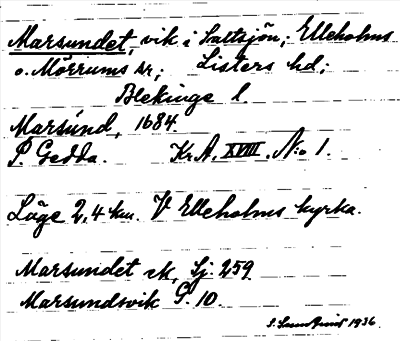 Marsundet, vik i Saltsjön; Elleholms
o. Mörrums sr; Listers hd;
Blekinge l.
Marsúnd, 1684.
P. Gedda. Kr. A. XVIII. No 1.
Läge 2,4 km. V Elleholms kyrka.
Marsundet ek, Sj 259
Marsundsvik G. 10.
1936.